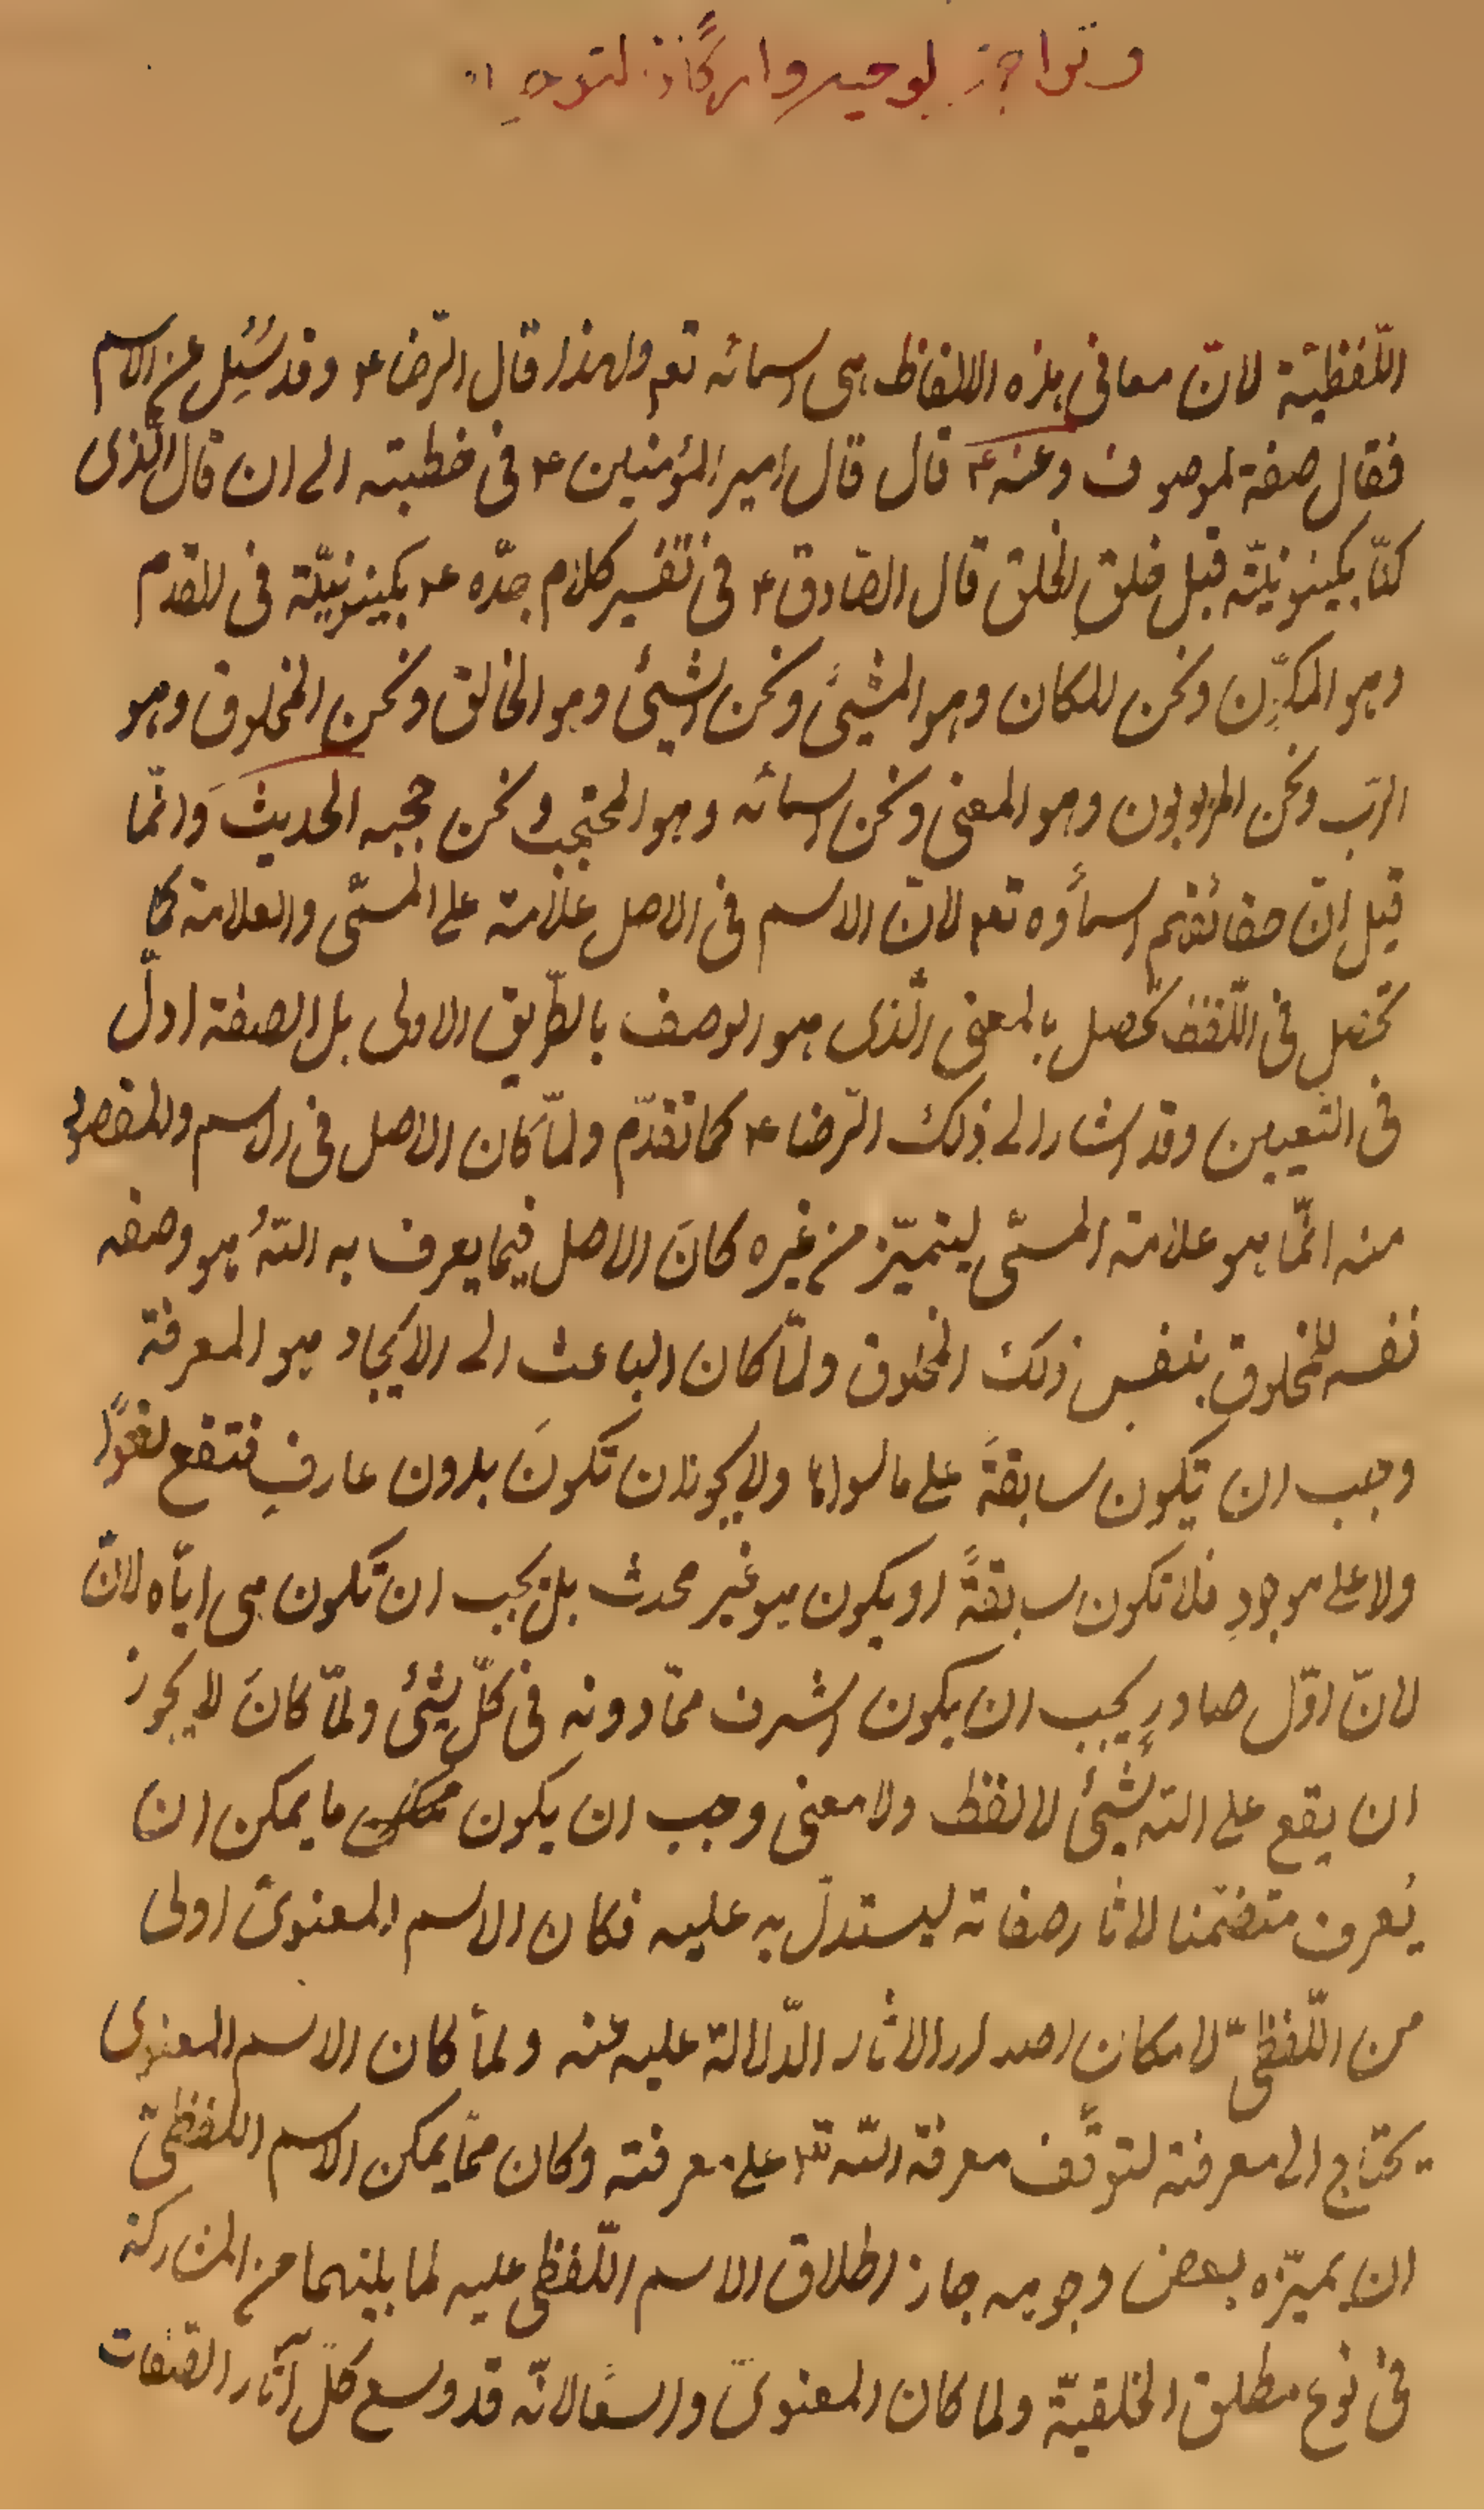 اللّفظيّة لانّ معانى هذه الالفاظ هى اسمائه تعم ولهذا قال الرّضا ۴ وقد سُئِل عن الاسم
فقال صفة لموصوف وعنه ۴ قال قال امير المؤمنين ۴ فى خطبته الى ان قال الّذى
كنّا بكينونيّته قبل خلق الخلق قال الصّادق ۴ فى تفسير كلام جدّه ۴ بكينونيّته فى القدم
وهو المكوِّن ونحن المكان وهو المشيّئ ونحن الشيئ وهو الخالق ونحن المخلوق وهو
الربّ ونحن المربوبون وهو المعنى ونحن اسمائه وهو المحتجب ونحن حجبه الحديث وَانّما
قيل انّ حقائقهم اسماؤه تعم لانّ الاسم فى الاصل علامة على المسمّى والعلامة كما
تحصل فى اللّفظ تحصل بالمعنى الّذى هو الوصف بالطّريق الاولى بل الصفة ادلّ
فى التعيين وقد اشار الى ذلك الرّضا ۴ كما تقدّم ولمّا كان الاصل فى الاسم والمقصود
منه انّما هو علامة المسمّى ليتميّز من غيره كانَ الاصل فيما يعرف به اللهُ هو وصفه
نفسه للمخلوقِ بنفس ذلك المخلوق ولمّا كان الباعث الى الايجاد هو المعرفة
وجب ان تكون سابقةً على ما سواها ولا يجوز ان تكونَ بدون عارفٍ فتقع لغوًا
ولا على موجودٍ فلا تكون سابقةً او يكون هو غير محدث بل يجب ان تكون هى ايّاه لانّ
لانّ اوّل صادرٍ يجب ان يكون اشرف ممّا دونه فى كلّ شيئ ولمّا كانَ لا يجوز
ان يقع على الله شيئ لا لفظ ولا معنى وجب ان يكون ما يمكن ان
يُعرف متضمّنا لاثار صفاته ليستدلّ به عليه فكان الاسم المعنوىّ اولى
من اللّفظىّ لامكان اصدار الاثار الدّلالة عليه عنه ولمّا كان الاسم المعنوى
يحتاج الى معرفته لتوقّف معرفة الله تعم على معرفته وكان ممّا يمكن الاسم اللفظىّ
ان يميّزه ببعض وجوهه جاز اطلاق الاسم اللّفظى عليه لما بينهما من المشاركة
فى نوع مطلق الخلقيّة ولما كان المعنوىّ واسعًا لانّه قد وسع كلّ آثار الصّفات